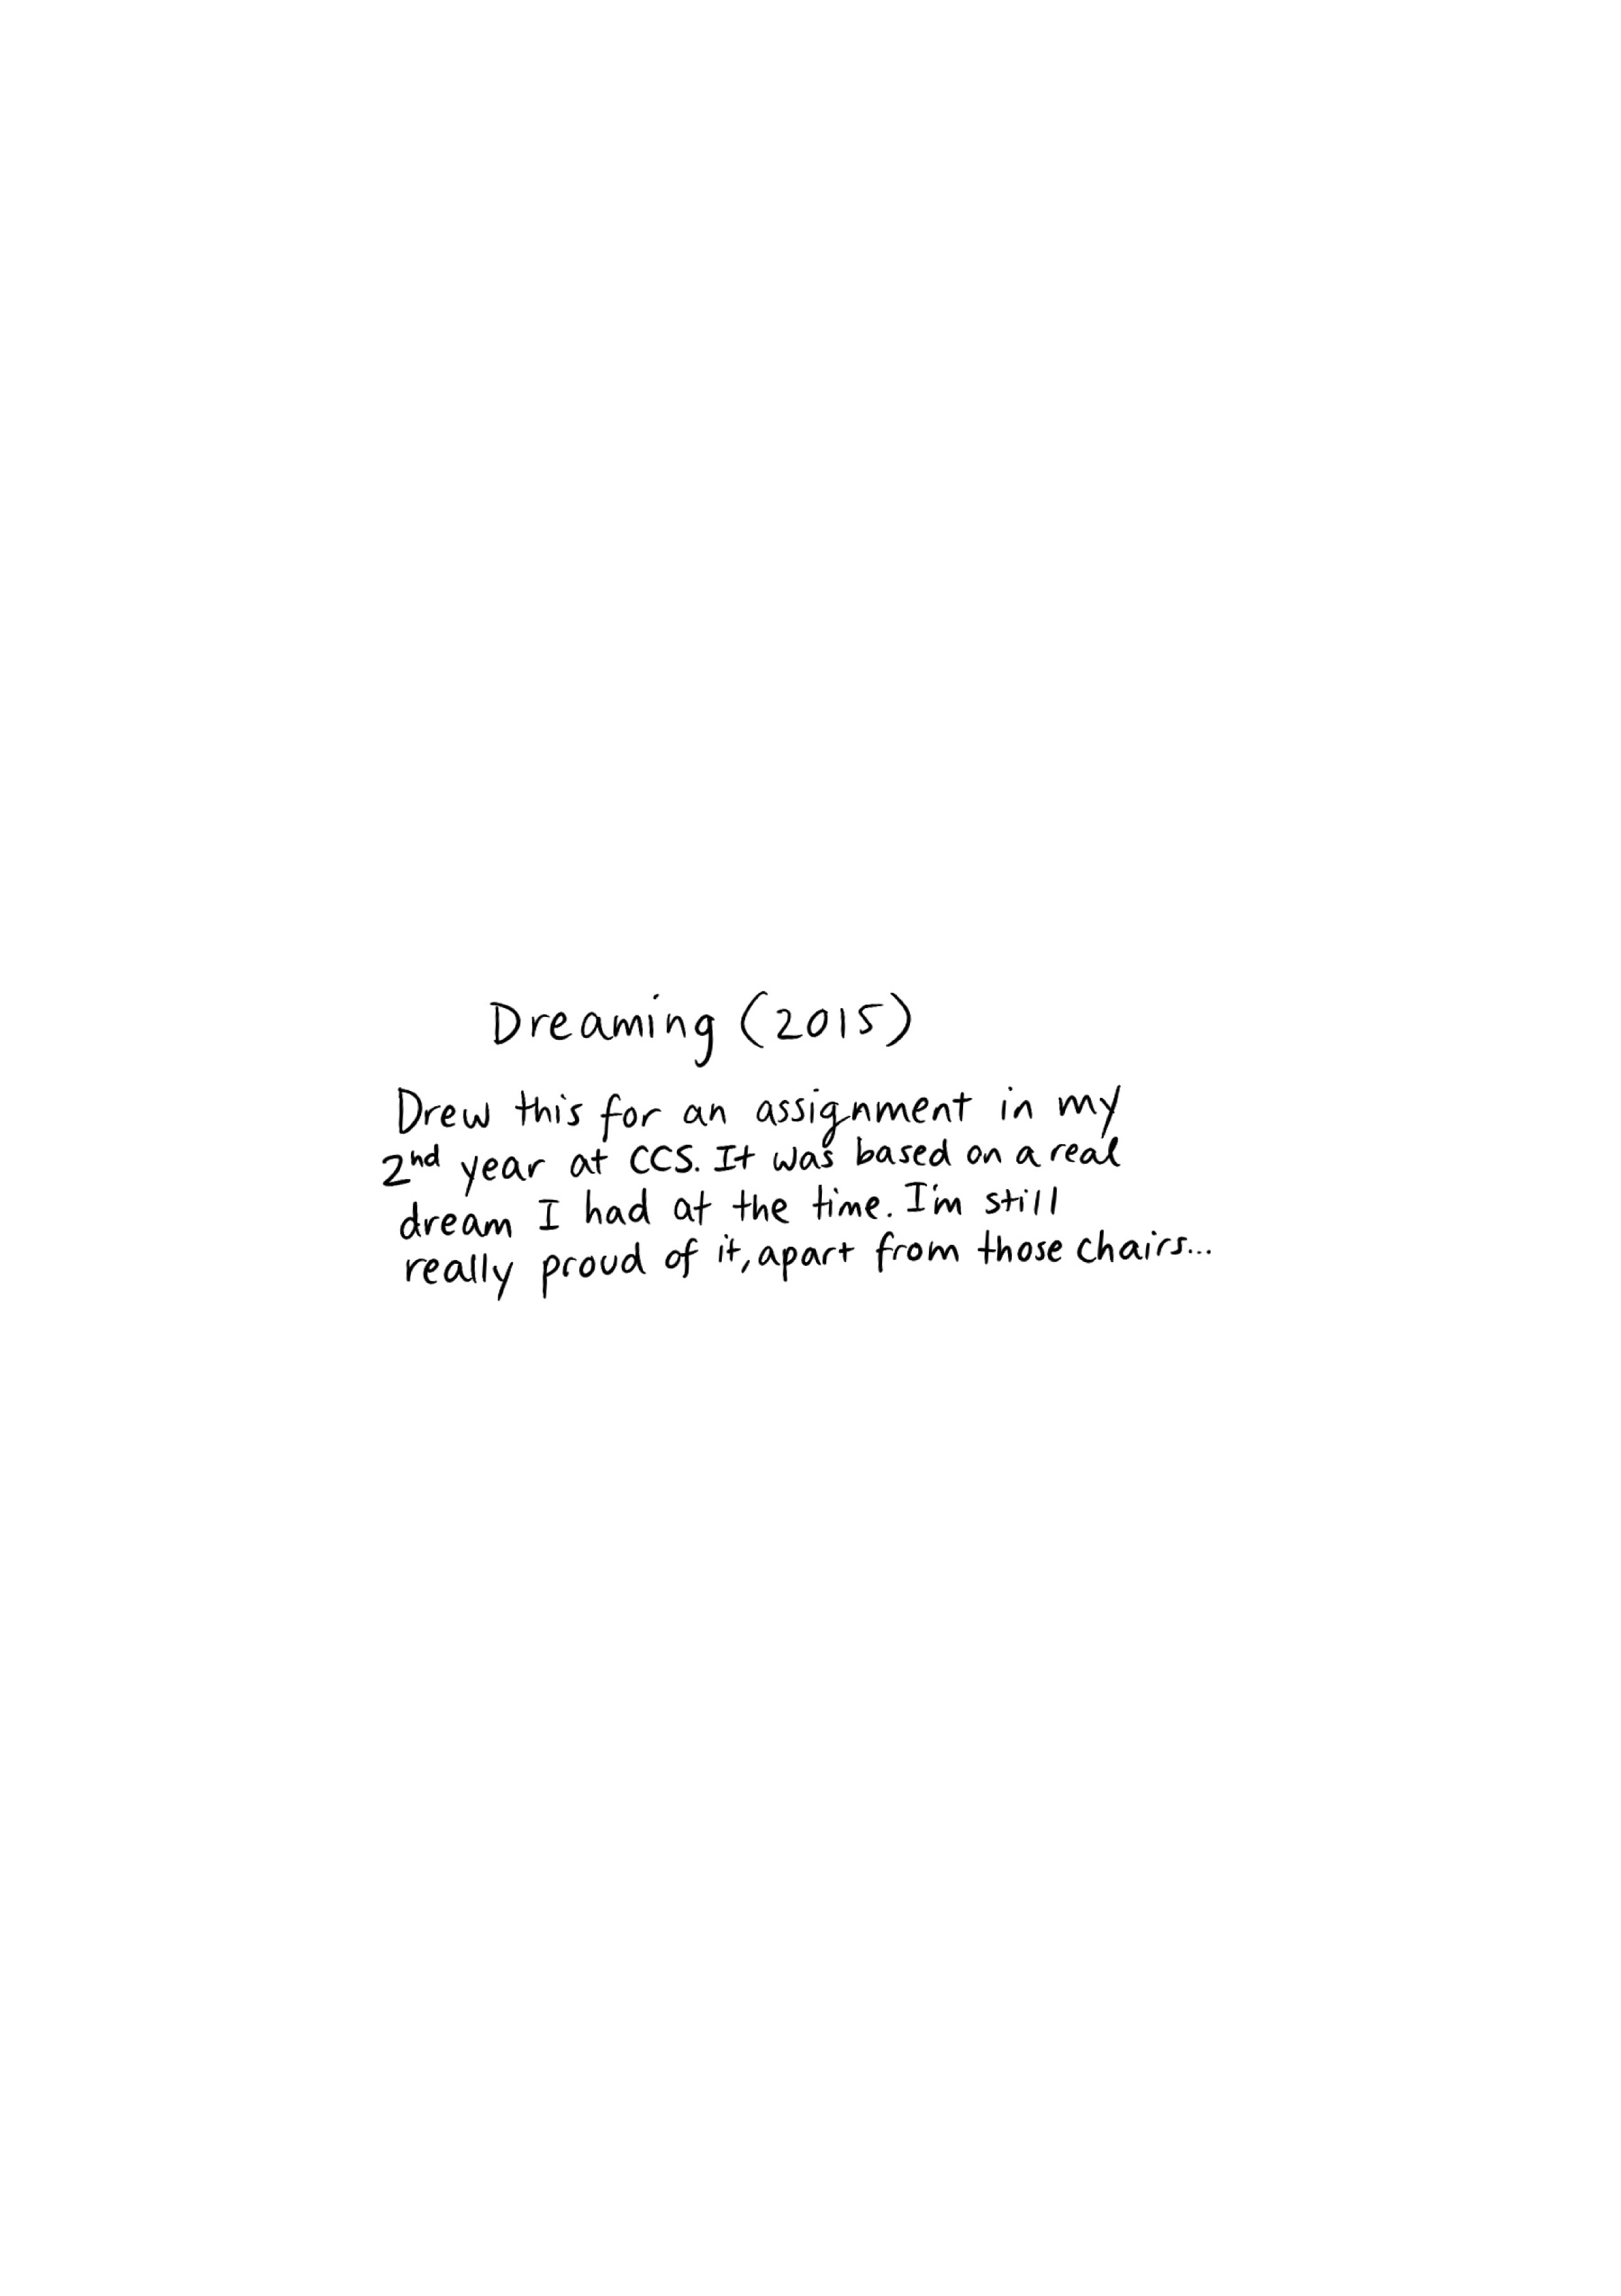 Dreaming (2015)
Drew this for an assignment in my
2nd year at CCS. It was based on a real
dream I had at the time. I'm still
really proud of it, apart from those chairs...